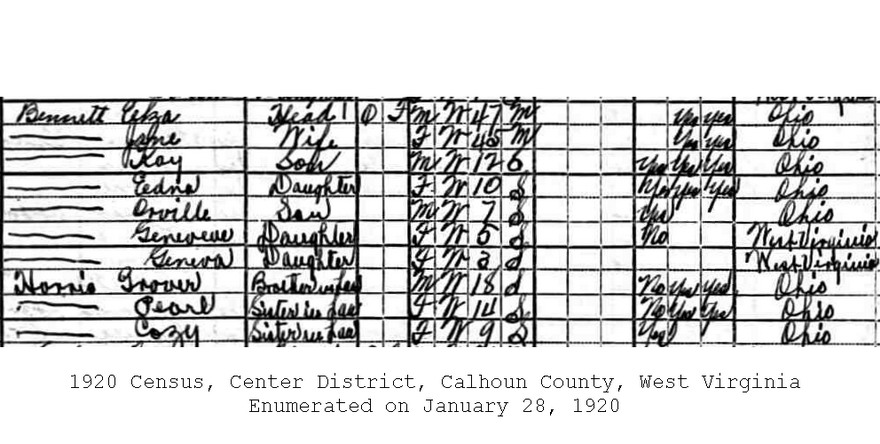 Bennett Head 1 O F M W 47 M Yes Yes Ohio
Wife F W 45 M Yes Yes Ohio
Ray Son M W 12 S Yes Yes Yes Ohio
Eedna Daughter F W 10 S Yes Yes Yes Ohio
Orville Son M W 7 S Yes Ohio
Geneveve Daughter F W 5 S No West Virginia
Geneva Daughter F W 3 S West Virginia
Grover Brother in law M W 18 S No Yes Yes Ohio
Pearl Sister in law F W 14 S No Yes Yes Ohio
Cozy Sister in law F W 9 S Yes Ohio
1920 Census, Center District, Calhoun County, West Virginia
Enumerated on January 28, 1920